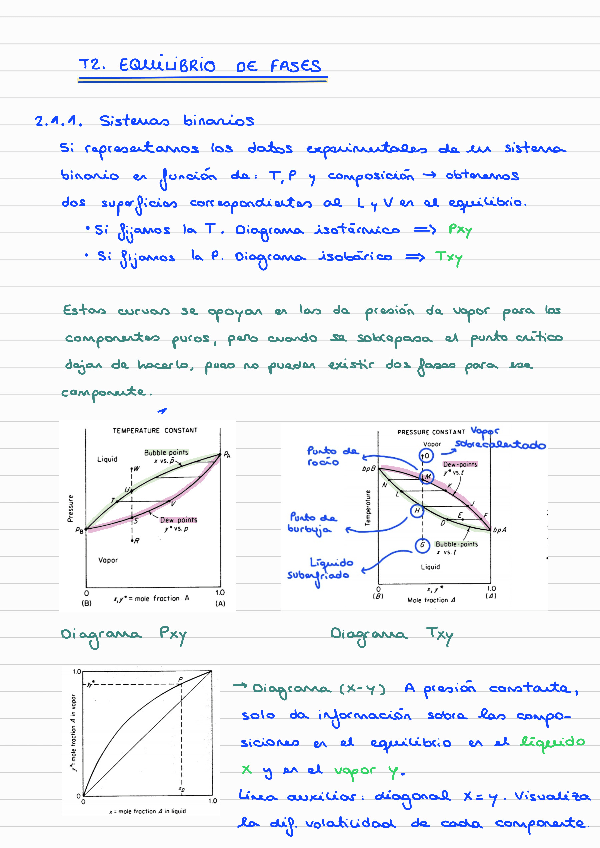 T2. EQUILIBRIO DE FASES
2.1.1. Sistemas binarios
Si representamos los datos experimentales de un sistema
binario en función de: T, P y composición → obtenemos
dos superficies correspondientes al L y V en el equilibrio.
· Si fijamos la T. Diagrama isotérmico => Pxy
· Si fijamos la P. Diagrama isobárico => Txy
Estas curvas se apoyan en las de presión de vapor para los
componentes puros, pero cuando se sobrepasa el punto crítico
dejan de hacerlo, pues no pueden existir dos fases para ese
componente.
TEMPERATURE CONSTANT
Liquid
Bubble points
x vs. p
W
U
T
V
S
R
Dew points
y* vs. p
Vapor
Pressure
PB
PA
0
1.0
(B)
(A)
x, y* = mole fraction A
PRESSURE CONSTANT
Vapor
sobrecalentado
Vapor
O
Punto de
rocío
Dew-points
y* vs. t
bpB
N
M
K
L
J
H
D
E
F
bpA
Punto de
burbuja
Temperature
G
Bubble-points
x vs. t
Líquido
subenfriado
Liquid
0
1.0
(B)
(A)
x, y*
Mole fraction A
Diagrama Pxy
Diagrama Txy
1.0
y*
P
y* mole fraction A in vapor
0
0
xp
1.0
x = mole fraction A in liquid
→ Diagrama (X-Y) A presión constante,
solo da información sobre las compo-
siciones en el equilibrio en el líquido
X y en el vapor Y.
Línea auxiliar: diagonal X=Y. Visualiza
la dif. volatilidad de cada componente.